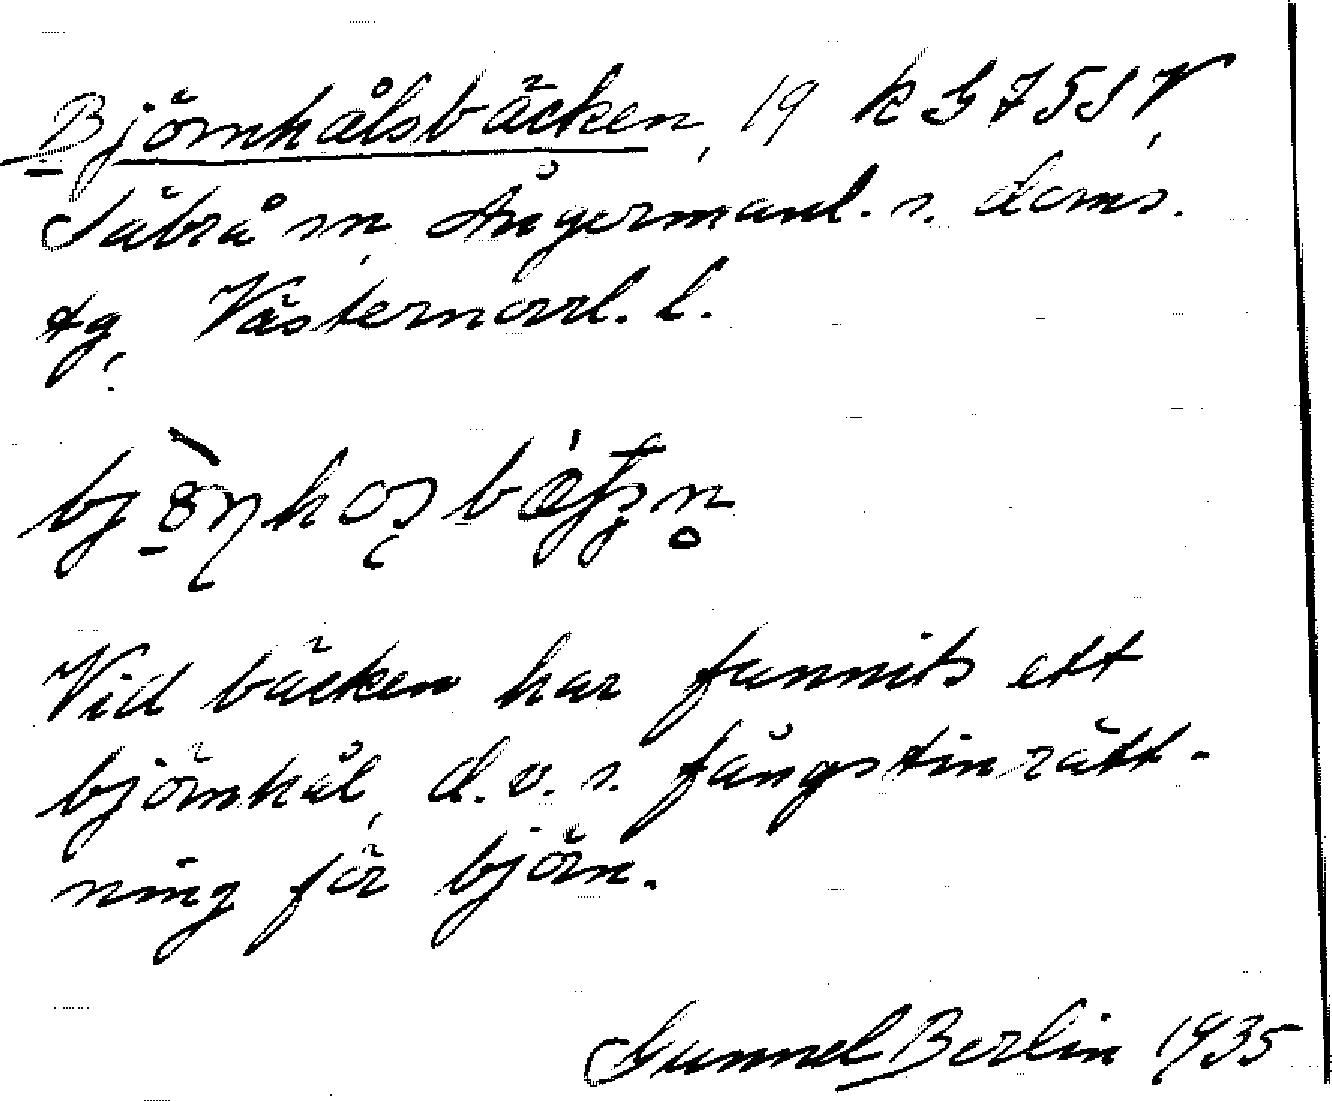 Björnhålsbäcken, 19 k G 7 5 S V,
Säbrå sn, Ångermanl. s. doms.
tg, Västernorrl. l.
Vid bäcken har funnits ett
björnhål, d.v.s. fångstinrätt-
ning för björn.
Gunnel Berlin 1935